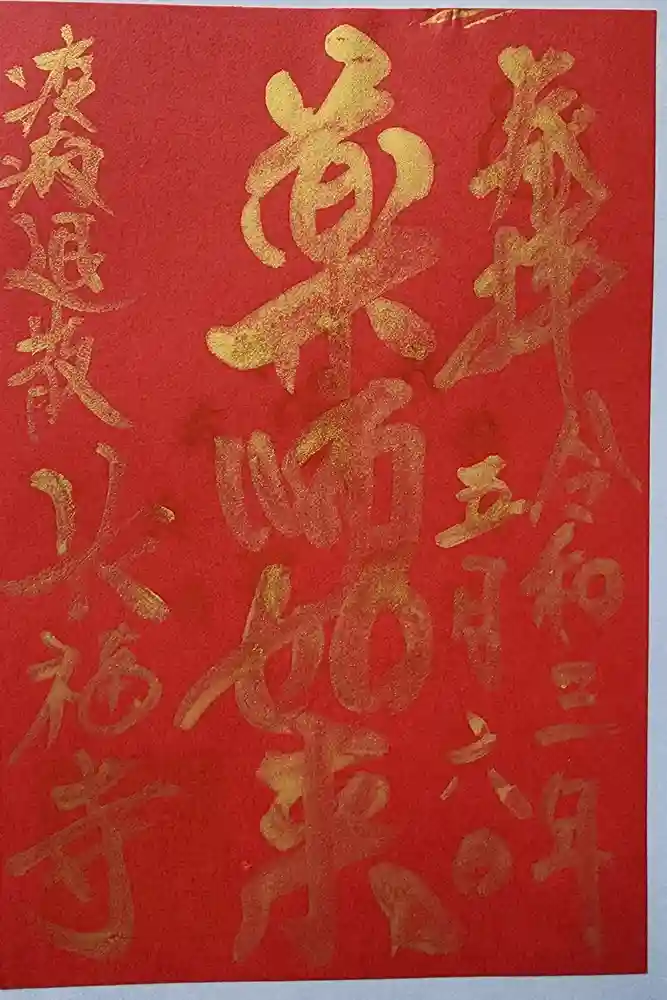 奉拝 令和三年
五月六日
薬師如来
疫病退散 大福寺